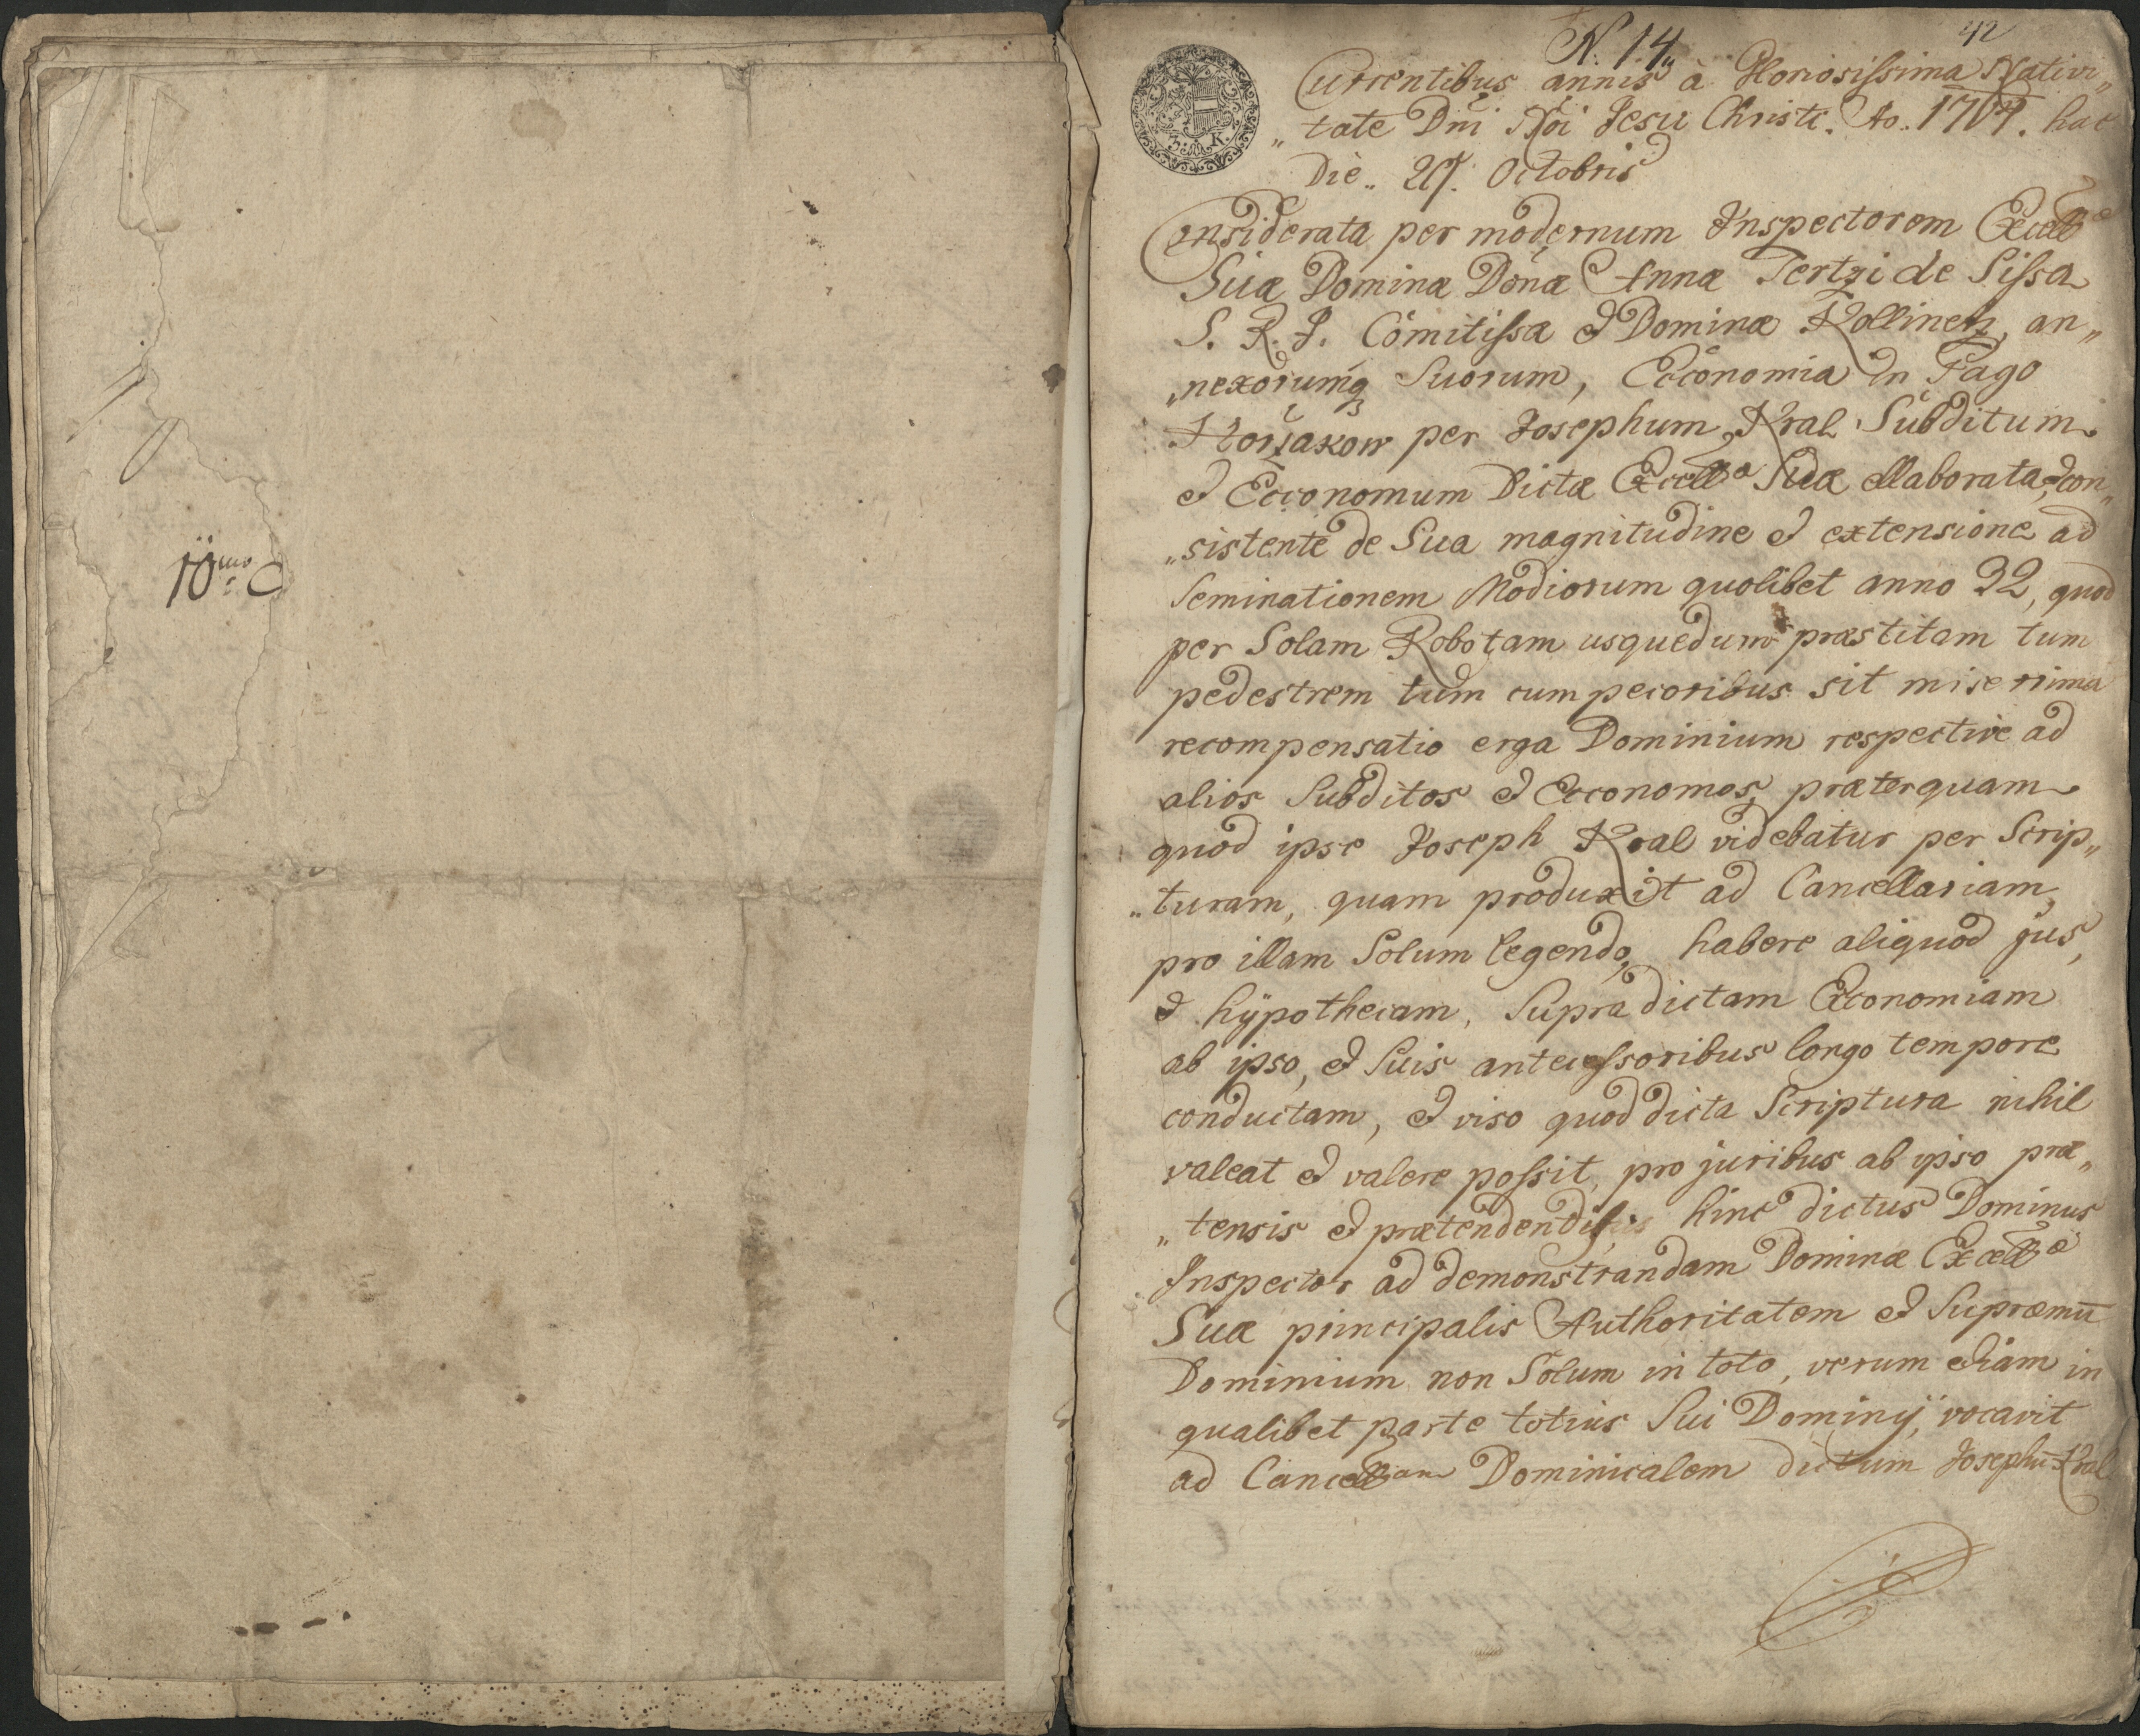 10mo C
42
N. 14
Currentibus annis à Gloriosissima Nativi„
„tate Dni Nri Jesu Christi. Ao. 1764. hac
Die„ 27. Octobris
Considerata per modernum Inspectorem Excellæ
Suæ Dominæ Donæ Annæ Tertzi de Sissa
S. R. J. Comitissæ et Dominæ Kollinetz, an„
„nexorumq Suorum, Œconomia in Pago
per Josephum Kral Subditum
et Œconomum Dictæ Excellæ Suæ ellaborata, con„
„sistente de Sua magnitudine et extensione ad
Seminationem Modiorum quolibet anno 32, quod
per Solam Robotam usquedum præstitam tum
pedestrem tum cum pecoribus sit miserrima
recompensatio erga Dominium respective ad
alios Subditos et Œconomos, præterquam
quod ipse Joseph Kral videbatur per Scrip„
„turam, quam produxit ad Cancellariam,
pro illam Solum legendo, habere aliquod jus,
et hÿpothecam, Supradictam Œconomiam
ab ipso, et Suis antecessoribus longo tempore
conductam, et viso quod dicta Scriptura nihil
valeat et valere possit, pro juribus ab ipso præ„
„tensis et prætendendis, hinc dictus Dominus
Inspector ad demonstrandam Dominæ Excellæ
Suæ principalis Authoritatem et Supræmū
Dominium non Solum in toto, verum etiam in
qualibet parte totius Sui Dominÿ, vocavit
ad Cancellriam Dominicalem dictum Josephū Kral